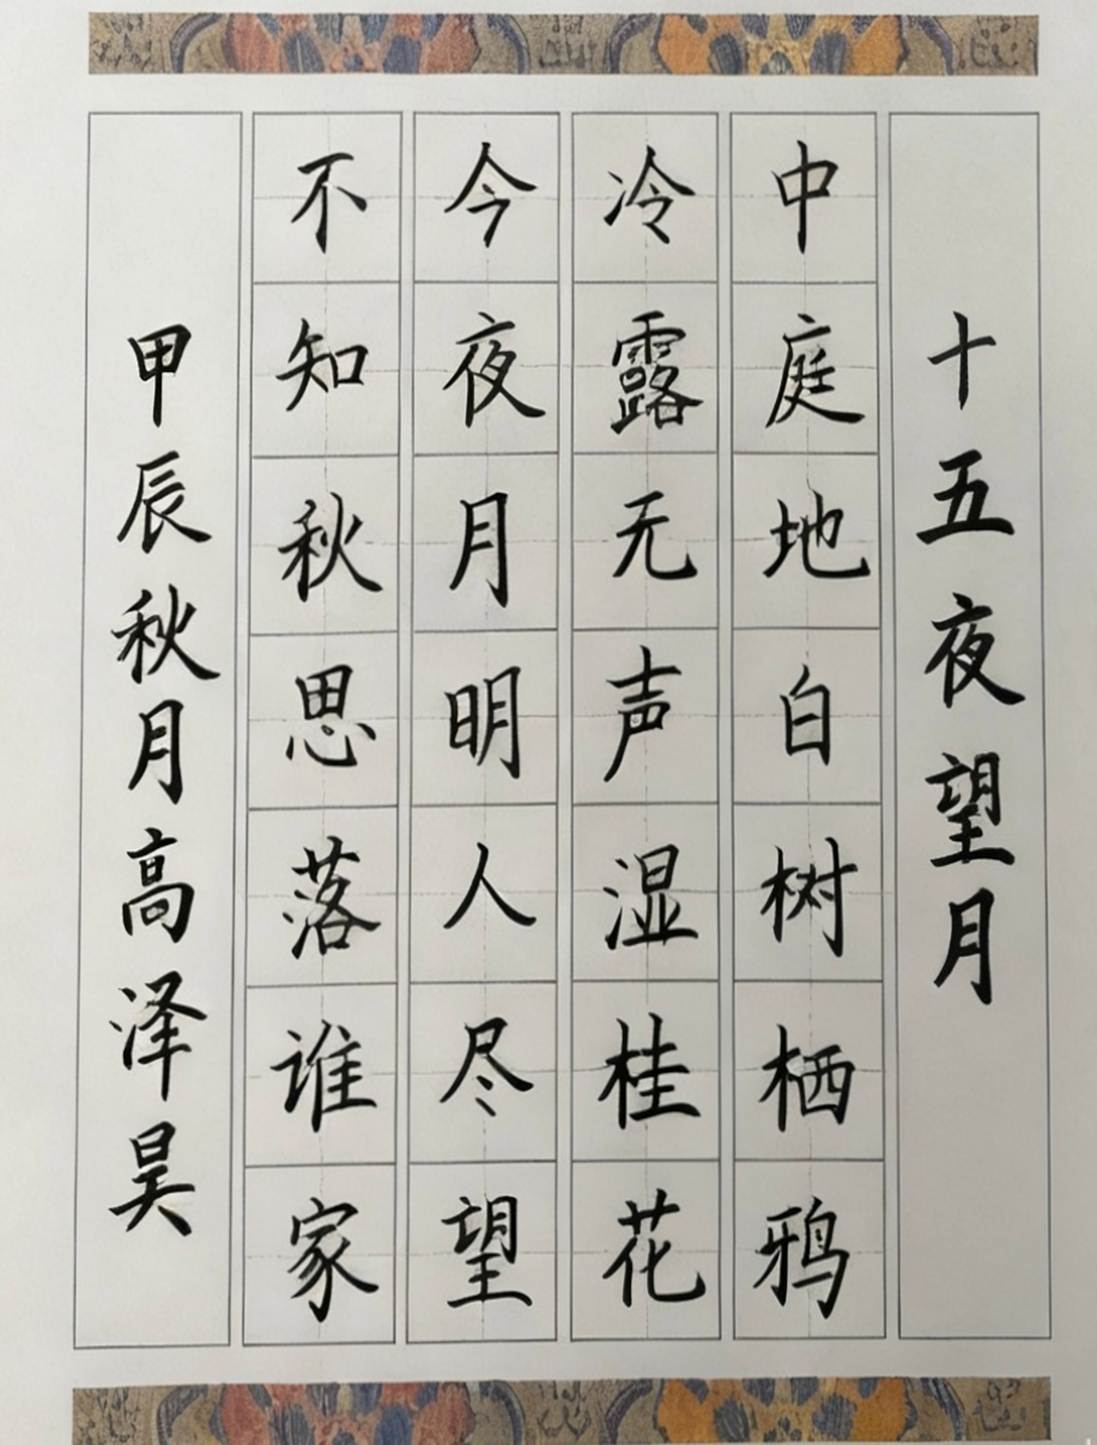 十五夜望月
中庭地白树栖鸦
冷露无声湿桂花
今夜月明人尽望
不知秋思落谁家
甲辰秋月高泽昊